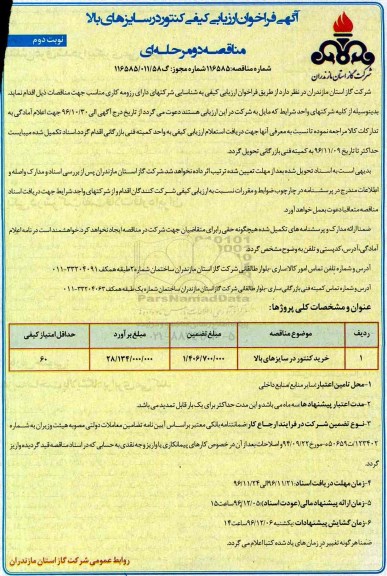 آگهی فراخوان ارزیابی کیفی کنتور در سایزهای بالا
نوبت دوم
مناقصه دو مرحله‌ای
شرکت گاز استان مازندران
شماره مناقصه: ۱۱۶۵۸۵ شماره مجوز: گ۵۸/۰۱۱/۱۱۶۵۸۵
شرکت گاز استان مازندران در نظر دارد از طریق فراخوان ارزیابی کیفی به شناسایی شرکتهای دارای رزومه کاری مناسب جهت مناقصات ذیل اقدام نماید.
بدینوسیله از کلیه شرکتهای واجد شرایط که مایل به شرکت در این ارزیابی هستند دعوت می گردد از تاریخ درج آگهی الی ۹۶/۱۰/۳۰ جهت اعلام آمادگی به
تدارکات کالا مراجعه نموده تا نسبت به معرفی آنها جهت دریافت استعلام ارزیابی کیفی به واحد کمیته فنی بازرگانی اقدام گردد اسناد تکمیل شده میبایست
حداکثر تا تاریخ ۹۶/۱۱/۰۹ به کمیته فنی بازرگانی تحویل گردد.
بدیهی است به اسناد تحویل شده بعد از مهلت تعیین شده ترتیب اثر داده نخواهد شد. شرکت گاز استان مازندران پس از بررسی اسناد و مدارک واصله و
اطلاعات مندرج در پرسشنامه در چارچوب ضوابط و مقررات نسبت به ارزیابی کیفی شرکت کنندگان اقدام و از شرکتهای واجد شرایط جهت دریافت اسناد
مناقصه متعاقبا دعوت بعمل خواهد آورد.
ضمنا ارائه مدارک و پرسشنامه های تکمیل شده هیچگونه حقی را برای متقاضیان جهت شرکت در مناقصه ایجاد نخواهد کرد. خواهشمند است در نامه اعلام
آمادگی، آدرس، کدپستی و تلفن به وضوح مشخص گردد.
آدرس و شماره تلفن تماس امور کالا: ساری- بلوار طالقانی شرکت گاز استان مازندران ساختمان شماره ۲ طبقه همکف ۳۳۲۰۴۰۹۱-۰۱۱
آدرس و شماره تماس کمیته فنی بازرگانی: ساری- بلوار طالقانی شرکت گاز استان مازندران ساختمان شماره یک طبقه همکف ۳۳۲۰۴۰۶۳-۰۱۱
عنوان و مشخصات کلی پروژها:
ردیف موضوع مناقصه مبلغ تضمین مبلغ برآورد حداقل امتیاز کیفی
۱ خرید کنتور در سایزهای بالا ۱/۴۰۶/۷۰۰/۰۰۰ ۲۸/۱۳۴/۰۰۰/۰۰۰ ۶۰
۱-محل تامین اعتبار سایر منابع /منابع داخلی
۲-مدت اعتبار پیشنهادها سه ماه می باشد و این مدت حداکثر برای یک بار قابل تمدید می باشد.
۳-نوع تضمین شرکت در فرایند ارجاع کار ضمانتنامه بانکی معتبر بر اساس آیین نامه تضامین معاملات دولتی مصوبه هیئت وزیران به شماره
۱۲۳۴۰۲/ت۵۰۶۵۹ه مورخ ۹۴/۰۹/۲۲ و اصلاحات بعد از آن در خصوص کارهای پیمانکاری یا واریز وجه نقدی به حسابی که در اسناد مناقصه قید گردیده واریز
گردد.
۴-زمان مهلت دریافت اسناد: ۹۶/۱۱/۲۱ الی ۹۶/۱۱/۲۴
۵-زمان ارائه پیشنهاد مالی (عودت اسناد): ۹۶/۱۲/۰۵ ساعت ۱۵
۶-زمان گشایش پیشنهادات: یکشنبه ۹۶/۱۲/۰۶ ساعت ۱۴
ضمنا هر گونه تغییر در زمان های یاد شده کتبا اعلام می گردد.
روابط عمومی شرکت گاز استان مازندران